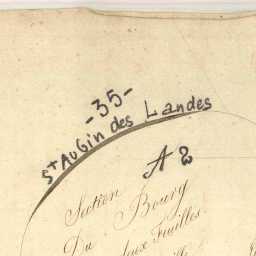 -35-
St AuBin des Landes
A 2
Section
Du Bourg
Feuilles